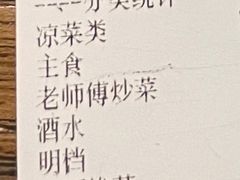 ----分类统计
凉菜类
主食
老师傅炒菜
酒水
明档